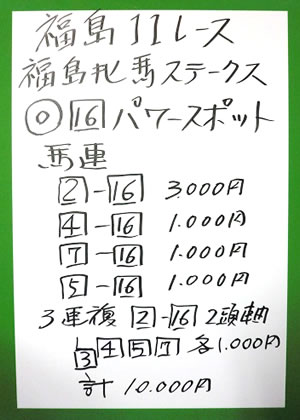 福島11レース
福島牝馬ステークス
◎16パワースポット
馬連
2-16 3.000円
4-16 1.000円
7-16 1.000円
5-16 1.000円
3連複 2-16 2頭軸
3457 各1.000円
計 10.000円